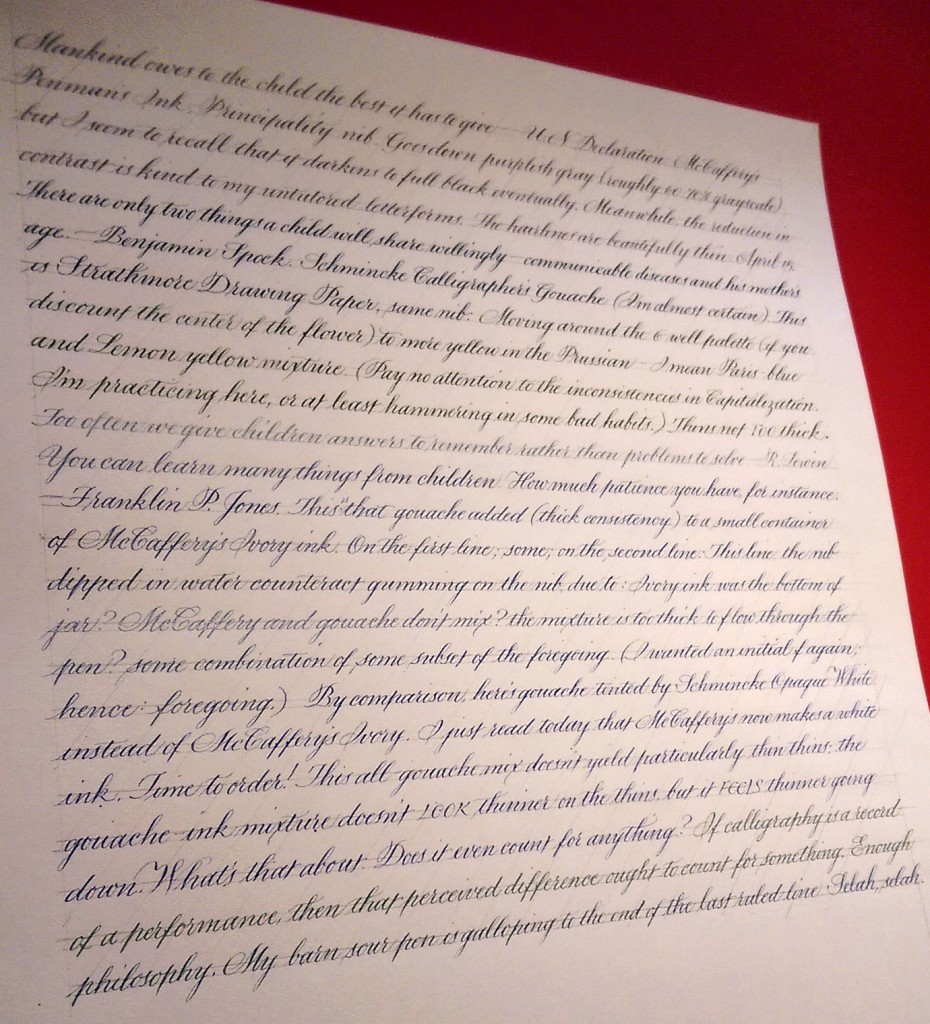 Mankind owes to the child the best it has to give — U.N. Declaration. McCaffery's
Penman's Ink. Principality nib. Goes down purplish gray (roughly 60-70% grayscale)
but I seem to recall that it darkens to full black eventually. Meanwhile, the reduction in
contrast is kind to my untutored letterforms. The hairlines are beautifully thin. April
There are only two things a child will share willingly — communicable diseases and his mother's
age. — Benjamin Spock. Schmincke Calligrapher's Gouache (I'm almost certain). This
is Strathmore Drawing Paper, same nib. Moving around the 6 well palette (if you
discount the center of the flower) to more yellow in the Prussian — I mean Paris blue
and Lemon yellow mixture. (Pay no attention to the inconsistencies in Capitalization.
I'm practicing here, or at least hammering in some bad habits.) Thins not too thick.
Too often we give children answers to remember rather than problems to solve — R. Lewin
You can learn many things from children. How much patience you have, for instance.
— Franklin P. Jones. This "that gouache added (thick consistency) to a small container
of McCaffery's Ivory ink. On the first line; some, on the second line. This line, the nib
dipped in water counteract gumming on the nib, due to: Ivory ink was the bottom of
jar? McCaffery and gouache don't mix? the mixture is too thick to flow through the
pen? some combination of some subset of the foregoing. (I wanted an initial f again;
hence: foregoing.) By comparison, here's gouache tinted by Schmincke Opaque White
instead of McCaffery's Ivory. I just read today that McCaffery's now makes a white
ink. Time to order! This all gouache mix doesn't yield particularly thin thins; the
gouache-ink mixture doesn't LOOK thinner on the thins, but it FEELS thinner going
down. What's that about? Does it even count for anything? If calligraphy is a record
of a performance, then that perceived difference ought to count for something. Enough
philosophy. My barn sour pen is galloping to the end of the last ruled line. Selah, selah.